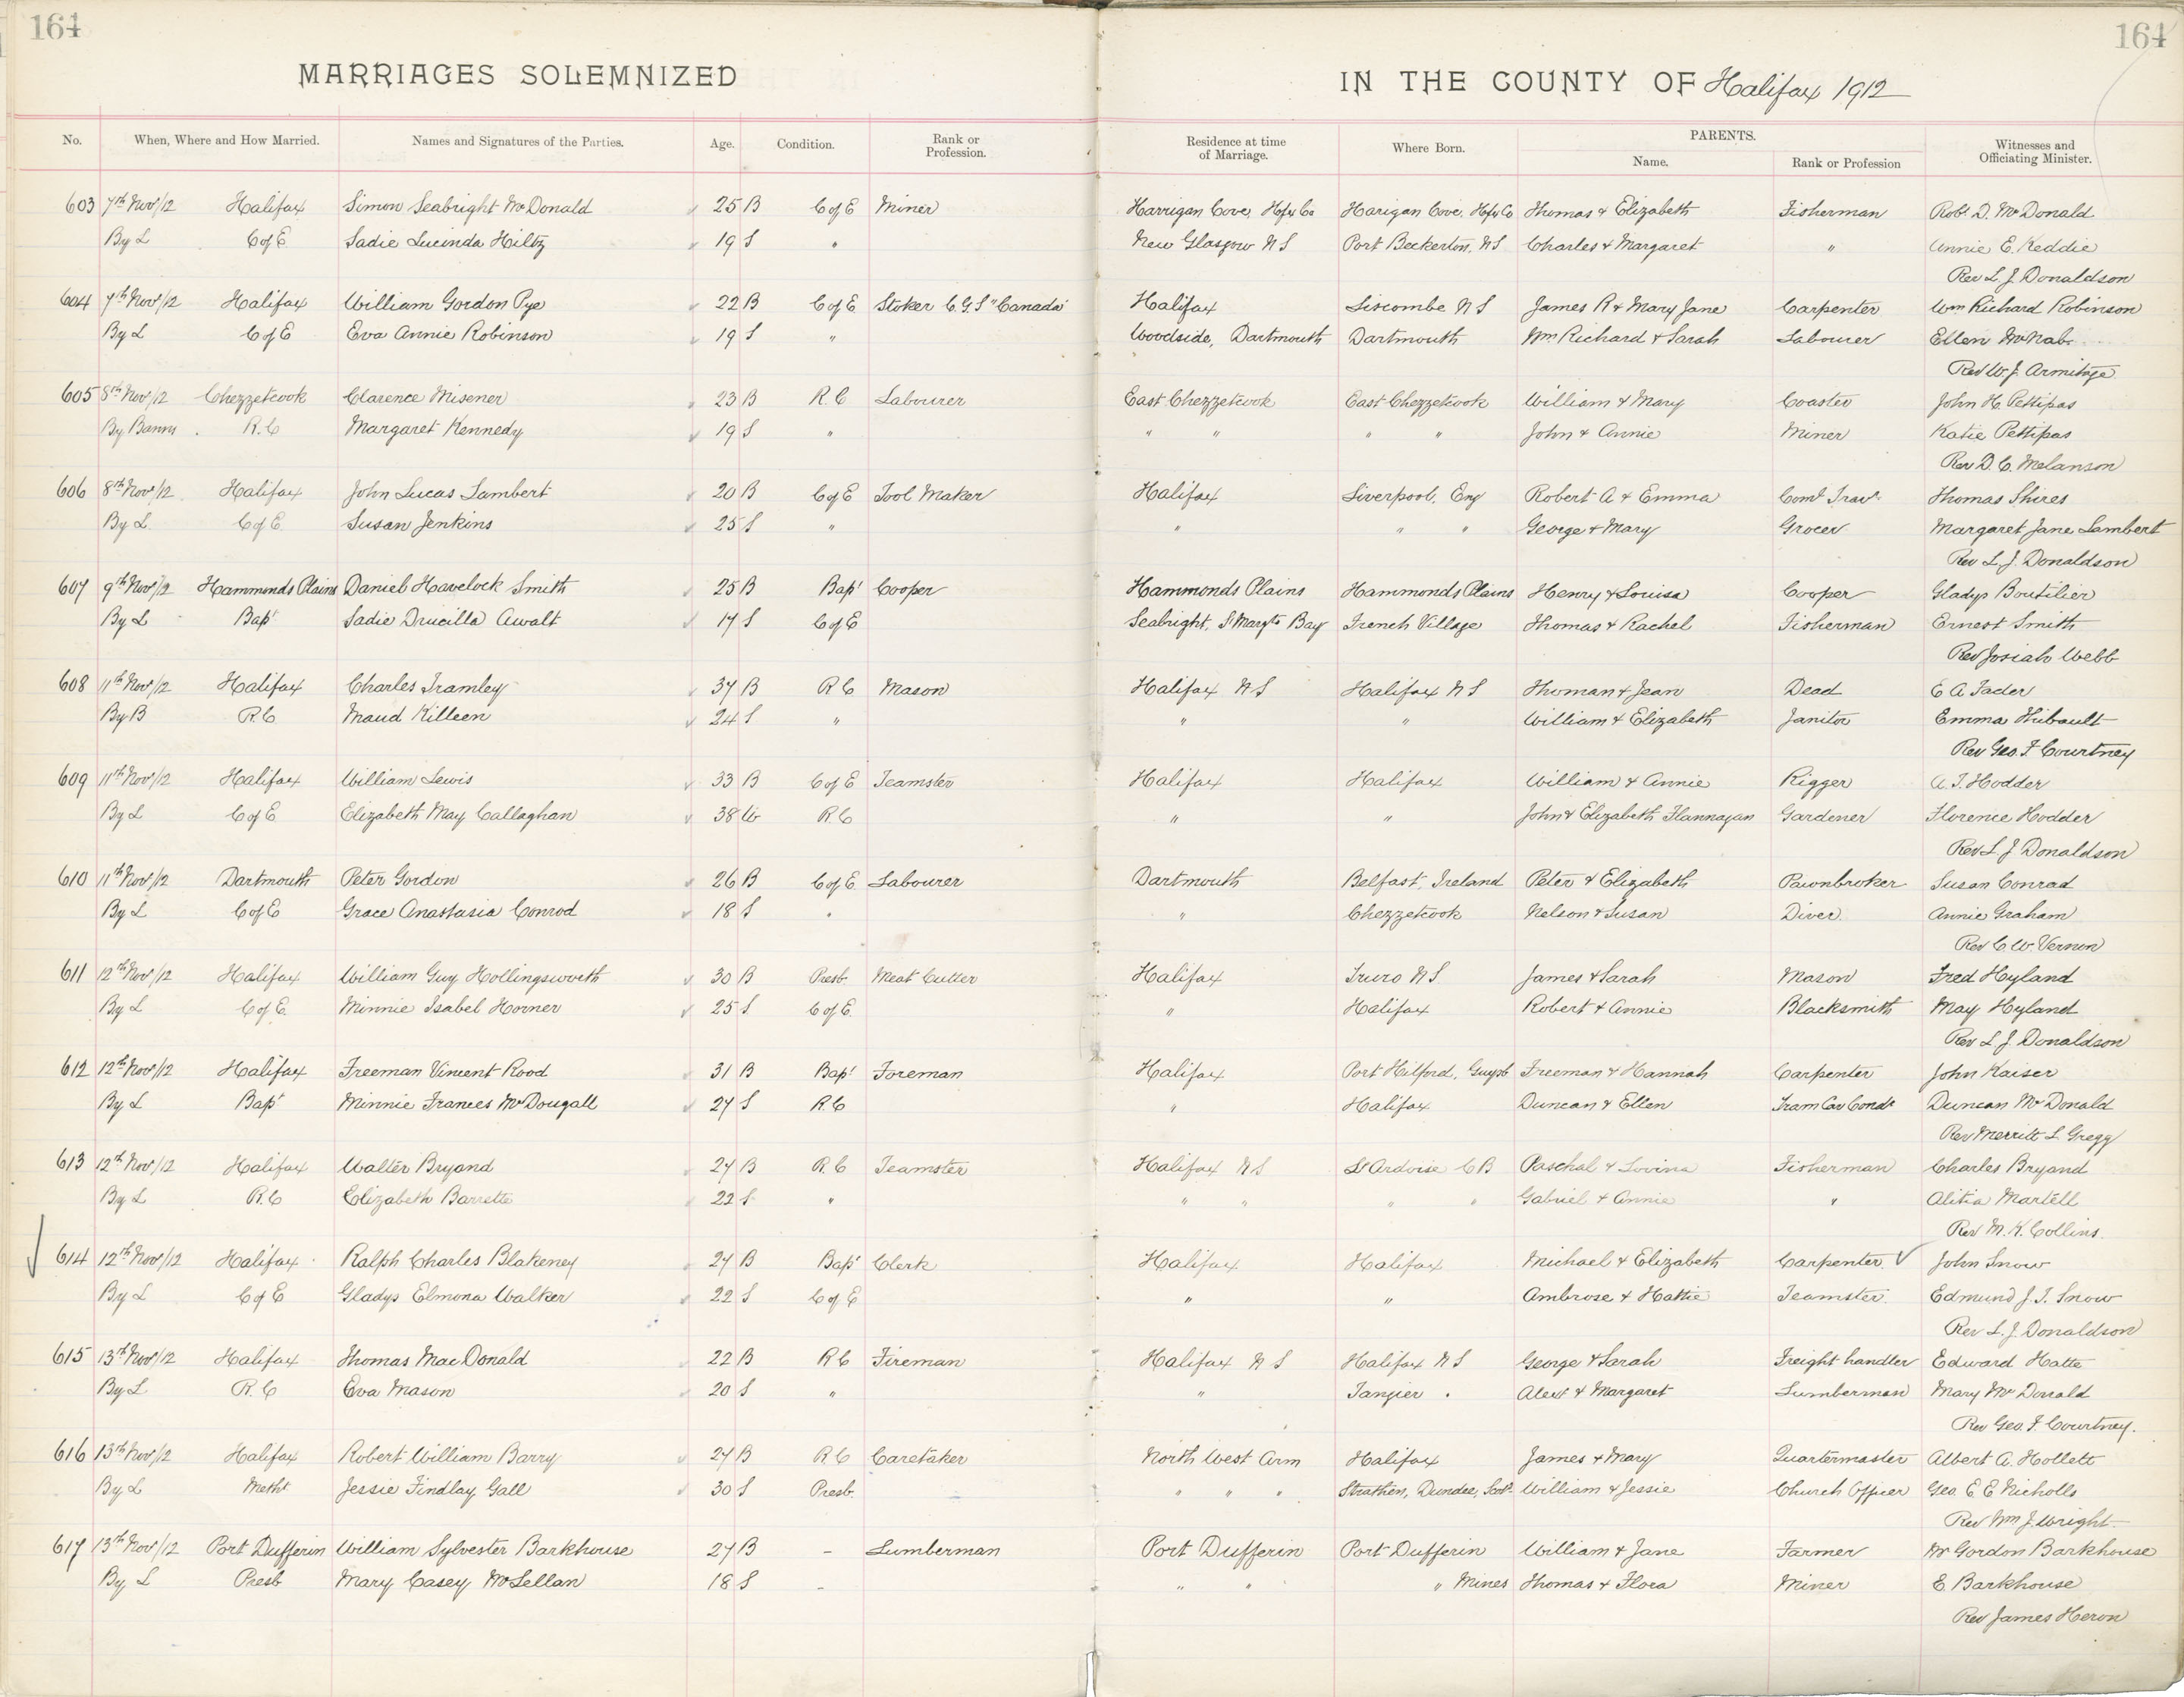 164 164
MARRIAGES SOLEMNIZED IN THE COUNTY OF Halifax 1912
No. When, Where and How Married. Names and Signatures of the Parties. Age. Condition. Rank or Profession. Residence at time of Marriage. Where Born. PARENTS. Name. Rank or Profession Witnesses and Officiating Minister.
603 7th Nov/12 Halifax Simon Seabright McDonald 25 B C of E Miner Harrigan Cove, Hfx Co Harigan Cove, Hfx Co Thomas & Elizabeth Fisherman Robt D. McDonald
By L C of E Sadie Lucinda Hiltz 19 S " New Glasgow N S Port Beckerton, N S Charles & Margaret " Annie E. Keddie
Rev L. J. Donaldson
604 7th Nov/12 Halifax William Gordon Pye 22 B C of E Stoker C.G.S "Canada" Halifax Liscombe N S James R & Mary Jane Carpenter Wm Richard Robinson
By L C of E Eva Annie Robinson 19 S " Woodside, Dartmouth Dartmouth Wm Richard & Sarah Labourer Ellen McNab
Rev W. J. Armitage
605 8th Nov/12 Chezzetcook Clarence Misener 23 B R.C Labourer East Chezzetcook East Chezzetcook William & Mary Coaster John H. Pettipas
By Banns R.C Margaret Kennedy 19 S " " " " " John & Annie Miner Katie Pettipas
Rev D. C. Melanson
606 8th Nov/12 Halifax John Lucas Lambert 20 B C of E Tool Maker Halifax Liverpool, Eng Robert A & Emma Coml Travr Thomas Shires
By L C of E Susan Jenkins 25 S " " " " George & Mary Grocer Margaret Jane Lambert
Rev L. J. Donaldson
607 9th Nov/12 Hammonds Plains Daniel Havelock Smith 25 B Bapt Cooper Hammonds Plains Hammonds Plains Henry & Louisa Cooper Gladys Boutilier
By L Bapt Sadie Drucilla Awalt 17 S C of E Seabright, St Margts Bay French Village Thomas & Rachel Fisherman Ernest Smith
Rev Josiah Webb
608 11th Nov/12 Halifax Charles Tramley 37 B R C Mason Halifax N S Halifax N S Thoman & Jean Dead E A Fader
By B R.C Maud Killeen 24 S " " " William & Elizabeth Janitor Emma Thibault
Rev Geo. F Courtney
609 11th Nov/12 Halifax William Lewis 33 B C of E Teamster Halifax Halifax William & Annie Rigger A. T. Hodder
By L C of E Elizabeth May Callaghan 38 W R C " " John & Elizabeth Flannagan Gardener Florence Hodder
Rev L. J Donaldson
610 11th Nov/12 Dartmouth Peter Gordon 26 B C of E Labourer Dartmouth Belfast, Ireland Peter & Elizabeth Pawnbroker Susan Conrad
By L C of E Grace Anastasia Conrod 18 S " " Chezzetcook Nelson & Susan Diver Annie Graham
Rev C. W. Vernon
611 12th Nov/12 Halifax William Guy Hollingsworth 30 B Presb. Meat Cutter Halifax Truro N S James & Sarah Mason Fred Hyland
By L C of E Minnie Isabel Horner 25 S C of E. " Halifax Robert & Annie Blacksmith May Hyland
Rev L. J. Donaldson
612 12th Nov/12 Halifax Freeman Vincent Rood 31 B Bapt Foreman Halifax Port Hilford, Guysb Freeman & Hannah Carpenter John Kaiser
By L Bapt Minnie Frances McDougall 27 S R.C " Halifax Duncan & Ellen Tram Car Condr Duncan McDonald
Rev Merritt L Gregg
613 12th Nov/12 Halifax Walter Bryand 27 B R.C Teamster Halifax N S L'Ardoise C B Paschal & Lovina Fisherman Charles Bryand
By L R.C Elizabeth Barrette 22 S " " " " " Gabriel & Annie " Alitia Martell
Rev M. K. Collins.
614 12th Nov/12 Halifax Ralph Charles Blakeney 27 B Bapt Clerk Halifax Halifax Michael & Elizabeth Carpenter John Snow
By L C of E Gladys Elmona Walker 22 S C of E " " Ambrose & Hattie Teamster Edmund J. T. Snow
Rev L. J. Donaldson
615 13th Nov/12 Halifax Thomas MacDonald 22 B R C Fireman Halifax N S Halifax N S George & Sarah Freight handler Edward Hatte
By L R.C Eva Mason 20 S " " Tangier Alex & Margaret Lumberman Mary McDonald
Rev Geo. F. Courtney.
616 13th Nov/12 Halifax Robert William Barry 27 B R C Caretaker North West Arm Halifax James & Mary Quartermaster Albert A. Hollett
By L Metht Jessie Findlay Gall 30 S Presb. " " " Strathen, Dundee, Scotd William & Jessie Church Officer Geo. E E Nicholls
Rev Wm J. Wright
617 13th Nov/12 Port Dufferin William Sylvester Barkhouse 27 B - Lumberman Port Dufferin Port Dufferin William & Jane Farmer Mr Gordon Barkhouse
By L Presb Mary Casey McLellan 18 S - " " " Mines Thomas & Flora Miner E Barkhouse
Rev James Heron